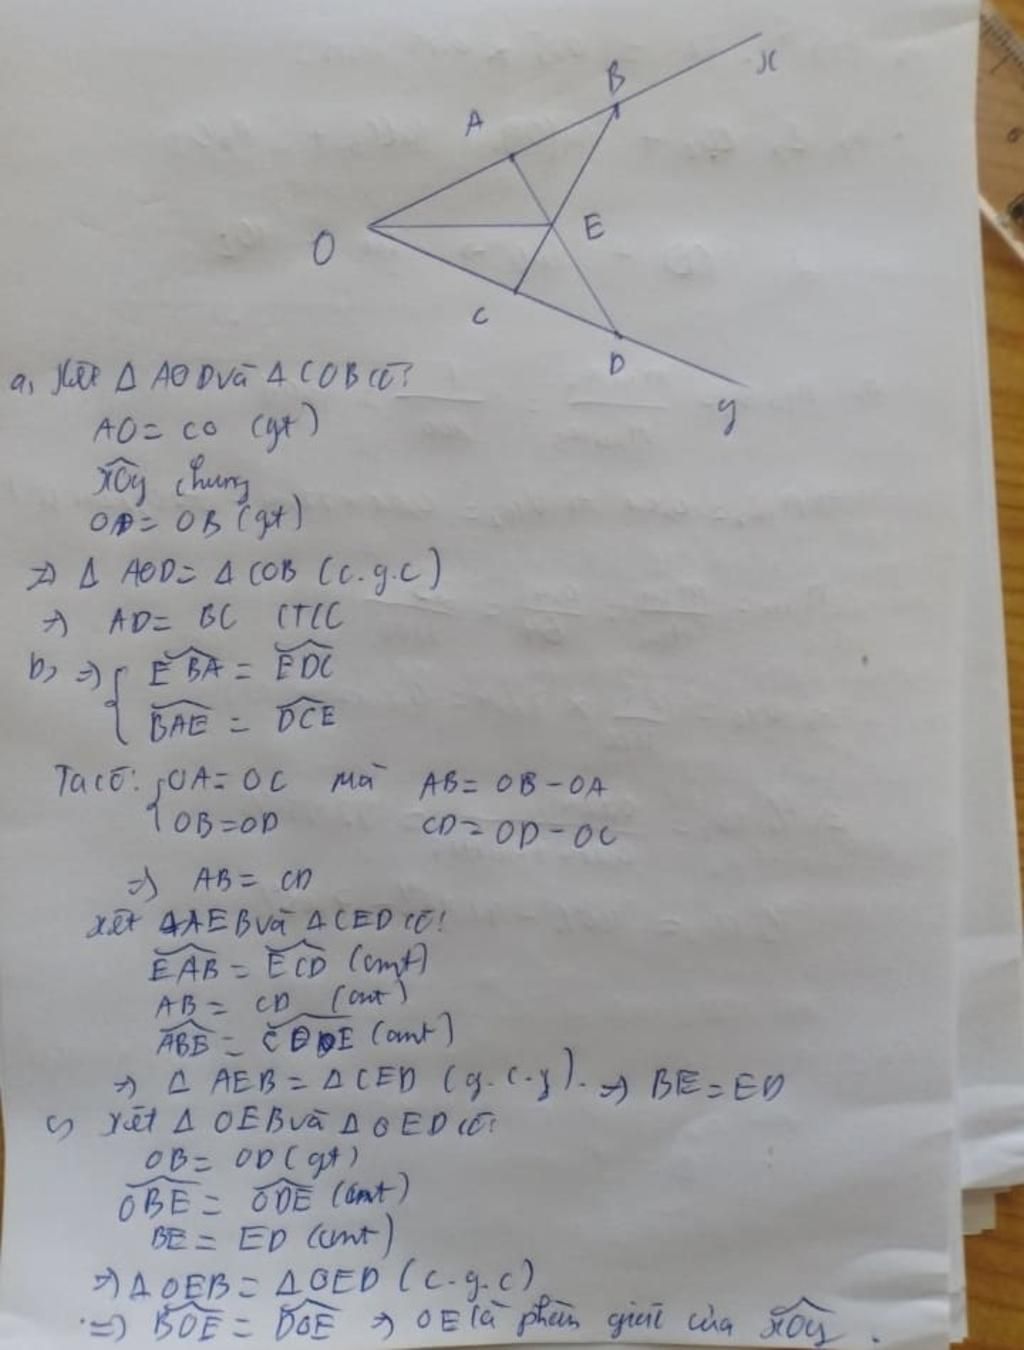 x
B
A
E
O
C
D
y
a, Xét Δ AOD và Δ COB có:
AO = CO (gt)
xOy chung
OD = OB (gt)
=> Δ AOD = Δ COB (c.g.c)
=> AD = BC CTCC
b, => { EBA = EDC
BAE = DCE
Ta có: { OA = OC mà AB = OB - OA
OB = OD CD = OD - OC
=> AB = CD
Xét ΔAEB và ΔCED có:
EAB = ECD (cmt)
AB = CD (cmt)
ABE = CDE (cmt)
=> Δ AEB = Δ CED (g.c.g). => BE = ED
c, Xét Δ OEB và Δ OED có:
OB = OD (gt)
OBE = ODE (cmt)
BE = ED (cmt)
=> Δ OEB = Δ OED (c.g.c)
=> BOE = DOE => OE là phân giác của xOy.